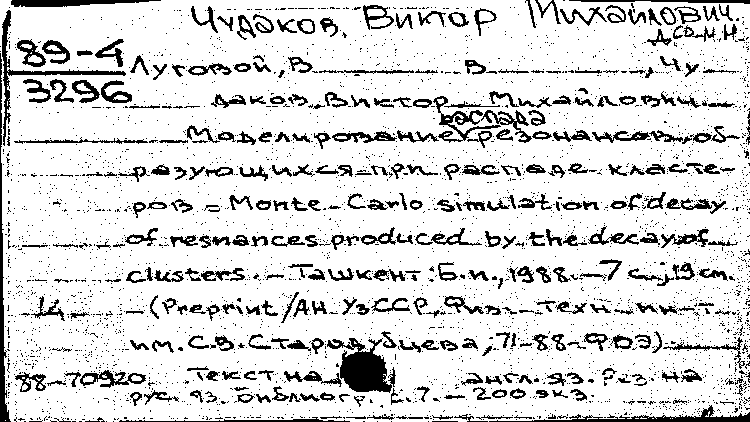 Чудаков, Виктор Михайлович.
89-4
3296
Луговой, В В , Чу
даков, Виктор Михайлович
распада
Моделирование резонансов, об-
разующихся при распаде класте-
ров = Monte-Carlo simulation of decay
of resnances produced by the decay of
clusters. - Ташкент: Б.и., 1988. - 7 с.; 19 см.
14 - (Preprint / АН УзССР, Физ.-техн. ин-т
им. С.В. Стародубцева, 71-88-ФВЭ)
88-70920 Текст на англ. яз. Рез. на
рус. яз. Библиогр.: с. 7. - 200 экз.